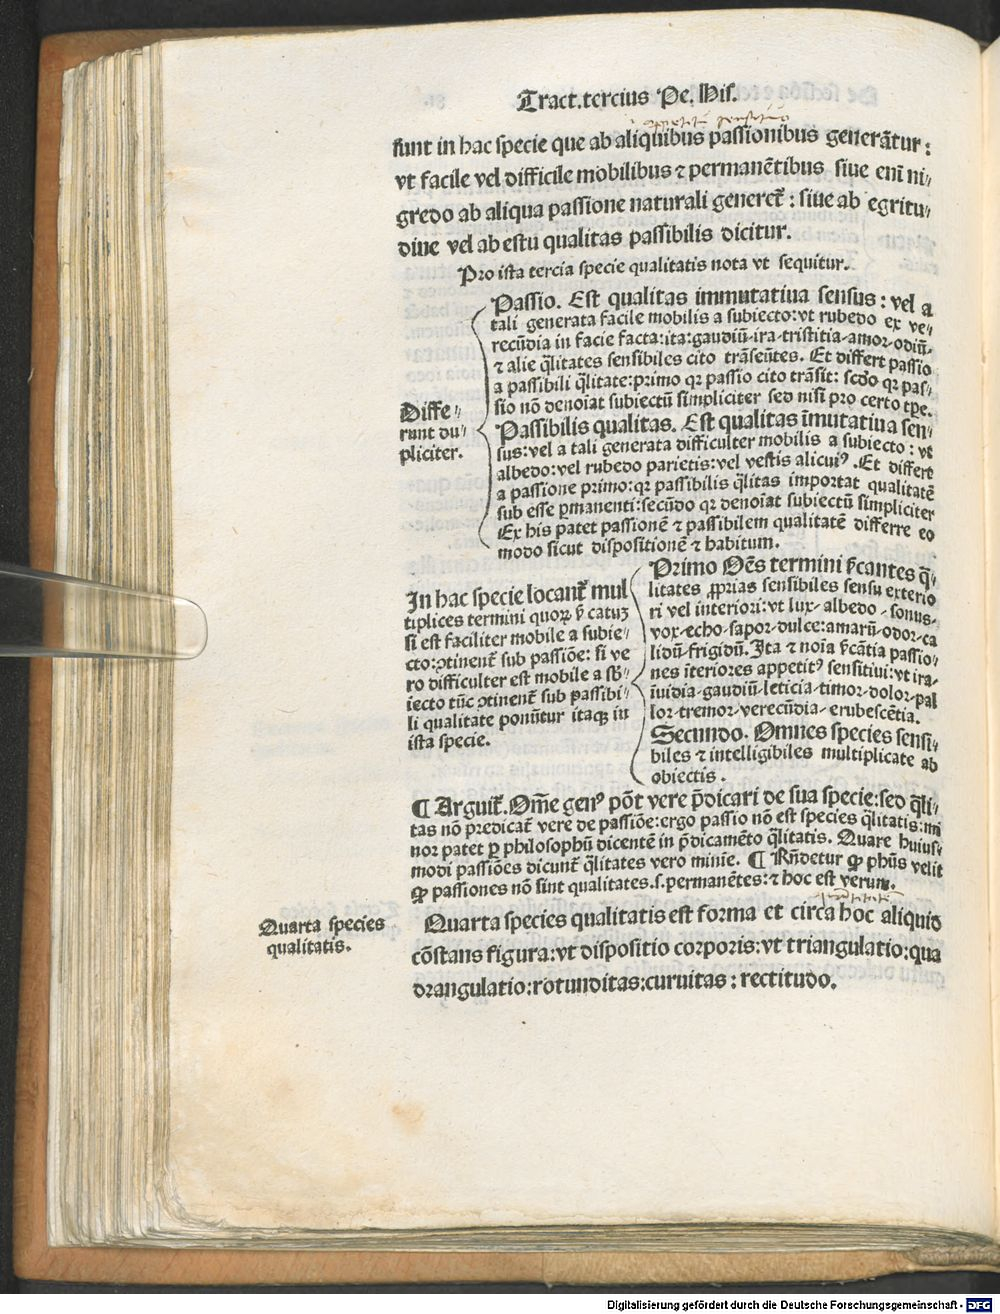 Tract. tercius Pe. His.
sunt in hac specie que ab aliquibus passionibus generãtur:
vt facile vel difficile mobilibus ⁊ permanẽtibus siue eni̅ ni⸗
gredo ab aliqua passione naturali generet̃: siue ab egritu⸗
dine vel ab estu qualitas passibilis dicitur.
Pro ista tercia specie qualitatis nota vt sequitur.
Differ⸗
runt du⸗
pliciter.
Passio. Est qualitas immutatiua sensus: vel a
tali generata facile mobilis a subiecto: vt rubedo ex ve⸗
recũdia in facie facta: ita: gaudiũ⸗ ira⸗ tristitia⸗ amor⸗ odiũ⸗
⁊ alie q̃litates sensibiles cito trãseũtes. Et differt passio
a passibili q̃litate: primo qꝛ passio cito trãsit: scďo qꝛ pas⸗
sio nõ denoi̅at subiectũ simpliciter sed nisi pro certo tp̅e.
Passibilis qualitas. Est qualitas i̅mutatiua sen⸗
sus: vel a tali generata difficulter mobilis a subiecto: vt
albedo: vel rubedo parietis: vel vestis alicuiꝰ. Et differt
a passione primo: qꝛ passibilis q̃litas importat qualitatẽ
sub esse ꝑmanenti: secũdo qꝛ denoi̅at subiectũ simpliciter
Ex his patet passionẽ ⁊ passibilem qualitatẽ differre eo
modo sicut dispositionẽ ⁊ habitum.
In hac specie locant̃ mul
tiplices termini quoꝝ ẜcatuꝫ
si est faciliter mobile a subie⸗
cto: ↄtinent̃ sub passiõe: si ve
ro difficulter est mobile a sb̅⸗
iecto tũc ↄtinent̃ sub passibi⸗
li qualitate ponũtur itaqꝫ in
ista specie.
Primo Oẽs termini ẜcantes q̃⸗
litates ꝓprias sensibiles sensu exterio
ri vel interiori: vt lux⸗ albedo⸗ sonus⸗
vox⸗ echo⸗ sapor⸗ dulce: amarũ⸗ odor⸗ ca
lidũ⸗ frigidũ. Ita ⁊ noi̅a ẜcãtia passio⸗
nes i̅teriores appetitꝰ sensitiui: vt ira⸗
i̅uidia⸗ gaudiũ⸗ leticia⸗ timor⸗ dolor⸗ pal
lor⸗ tremor⸗ verecũdia⸗ erubescẽtia.
Secundo. Omnes species sensi⸗
biles ⁊ intelligibiles multiplicate ab
obiectis.
¶ Arguit̃. Om̃e genꝰ põt vere p̃dicari de sua specie: sed q̃li⸗
tas nõ predicat̃ vere de passiõe: ergo passio nõ est species q̃litatis: mi
nor patet ꝑ philosophũ dicentẽ in p̃dicamẽto q̃litatis. Quare huius⸗
modi passiões dicunt̃ q̃litates vero mini̅e. ¶ Rñdetur ꝙ ph̅us velit
ꝙ passiones nõ sint qualitates .s. permanẽtes: ⁊ hoc est verum.
Quarta species
qualitatis.
Quarta species qualitatis est forma et circa hoc aliquid
cõstans figura: vt dispositio corporis: vt triangulatio: qua
drangulatio: rotunditas: curuitas: rectitudo.
Digitalisierung gefördert durch die Deutsche Forschungsgemeinschaft - DFG